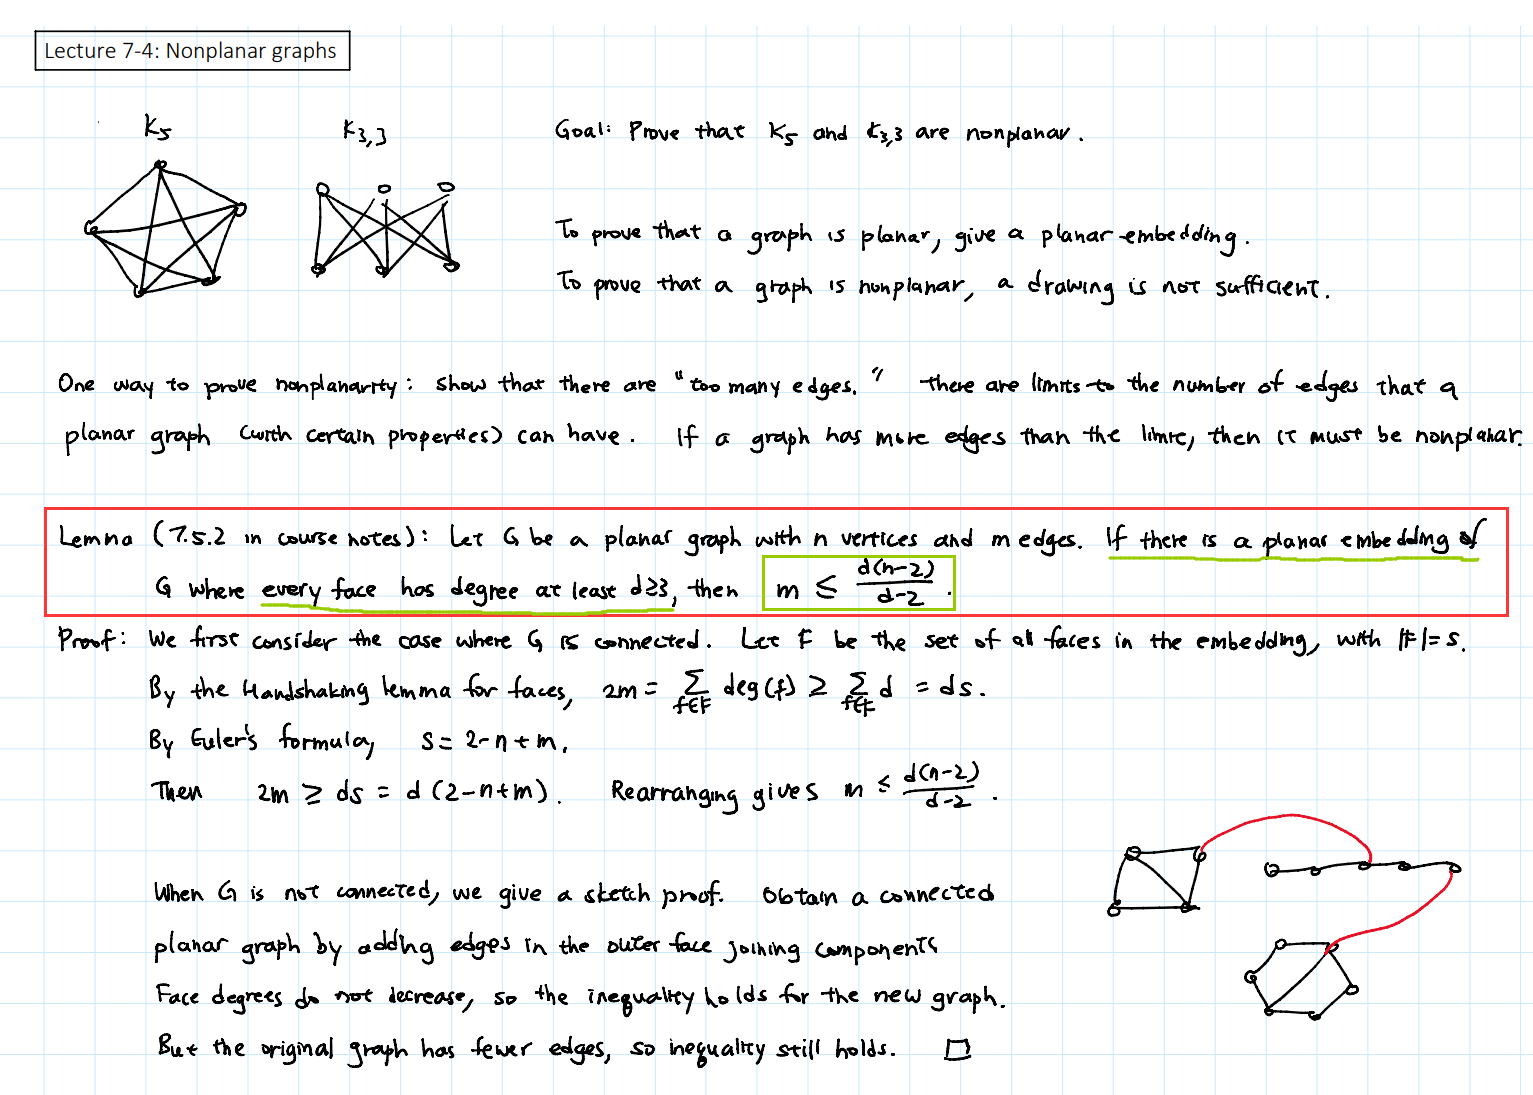 Lecture 7-4: Nonplanar graphs
K5 K3,3 Goal: Prove that K5 and K3,3 are nonplanar.
To prove that a graph is planar, give a planar embedding.
To prove that a graph is nonplanar, a drawing is not sufficient.
One way to prove nonplanarity: show that there are "too many edges." there are limits to the number of edges that a
planar graph (with certain properties) can have. If a graph has more edges than the limit, then it must be nonplanar.
Lemma (7.5.2 in course notes): Let G be a planar graph with n vertices and m edges. If there is a planar embedding of
G where every face has degree at least d≥3, then m ≤ d(n-2)/(d-2).
Proof: We first consider the case where G is connected. Let F be the set of all faces in the embedding, with |F|=s.
By the Handshaking lemma for faces, 2m = Σ_{f∈F} deg(f) ≥ Σ_{f∈F} d = ds.
By Euler's formula, s = 2-n+m.
Then 2m ≥ ds = d(2-n+m). Rearranging gives m ≤ d(n-2)/(d-2).
When G is not connected, we give a sketch proof. Obtain a connected
planar graph by adding edges in the outer face joining components
Face degrees do not decrease, so the inequality holds for the new graph.
But the original graph has fewer edges, so inequality still holds. □